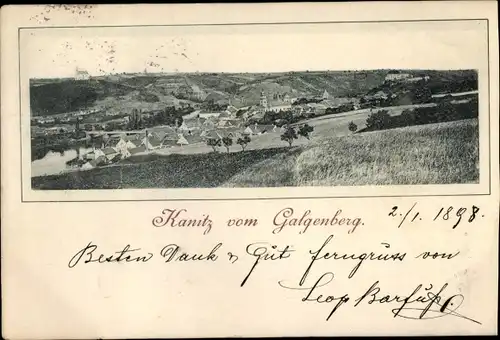 Kanitz vom Galgenberg.
2./1. 1898
Besten Dank & Gut ferngruss von
Leop Barfuß